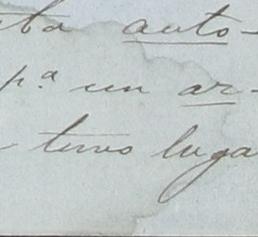 auto-
p.ª un ar-
tuvo luga